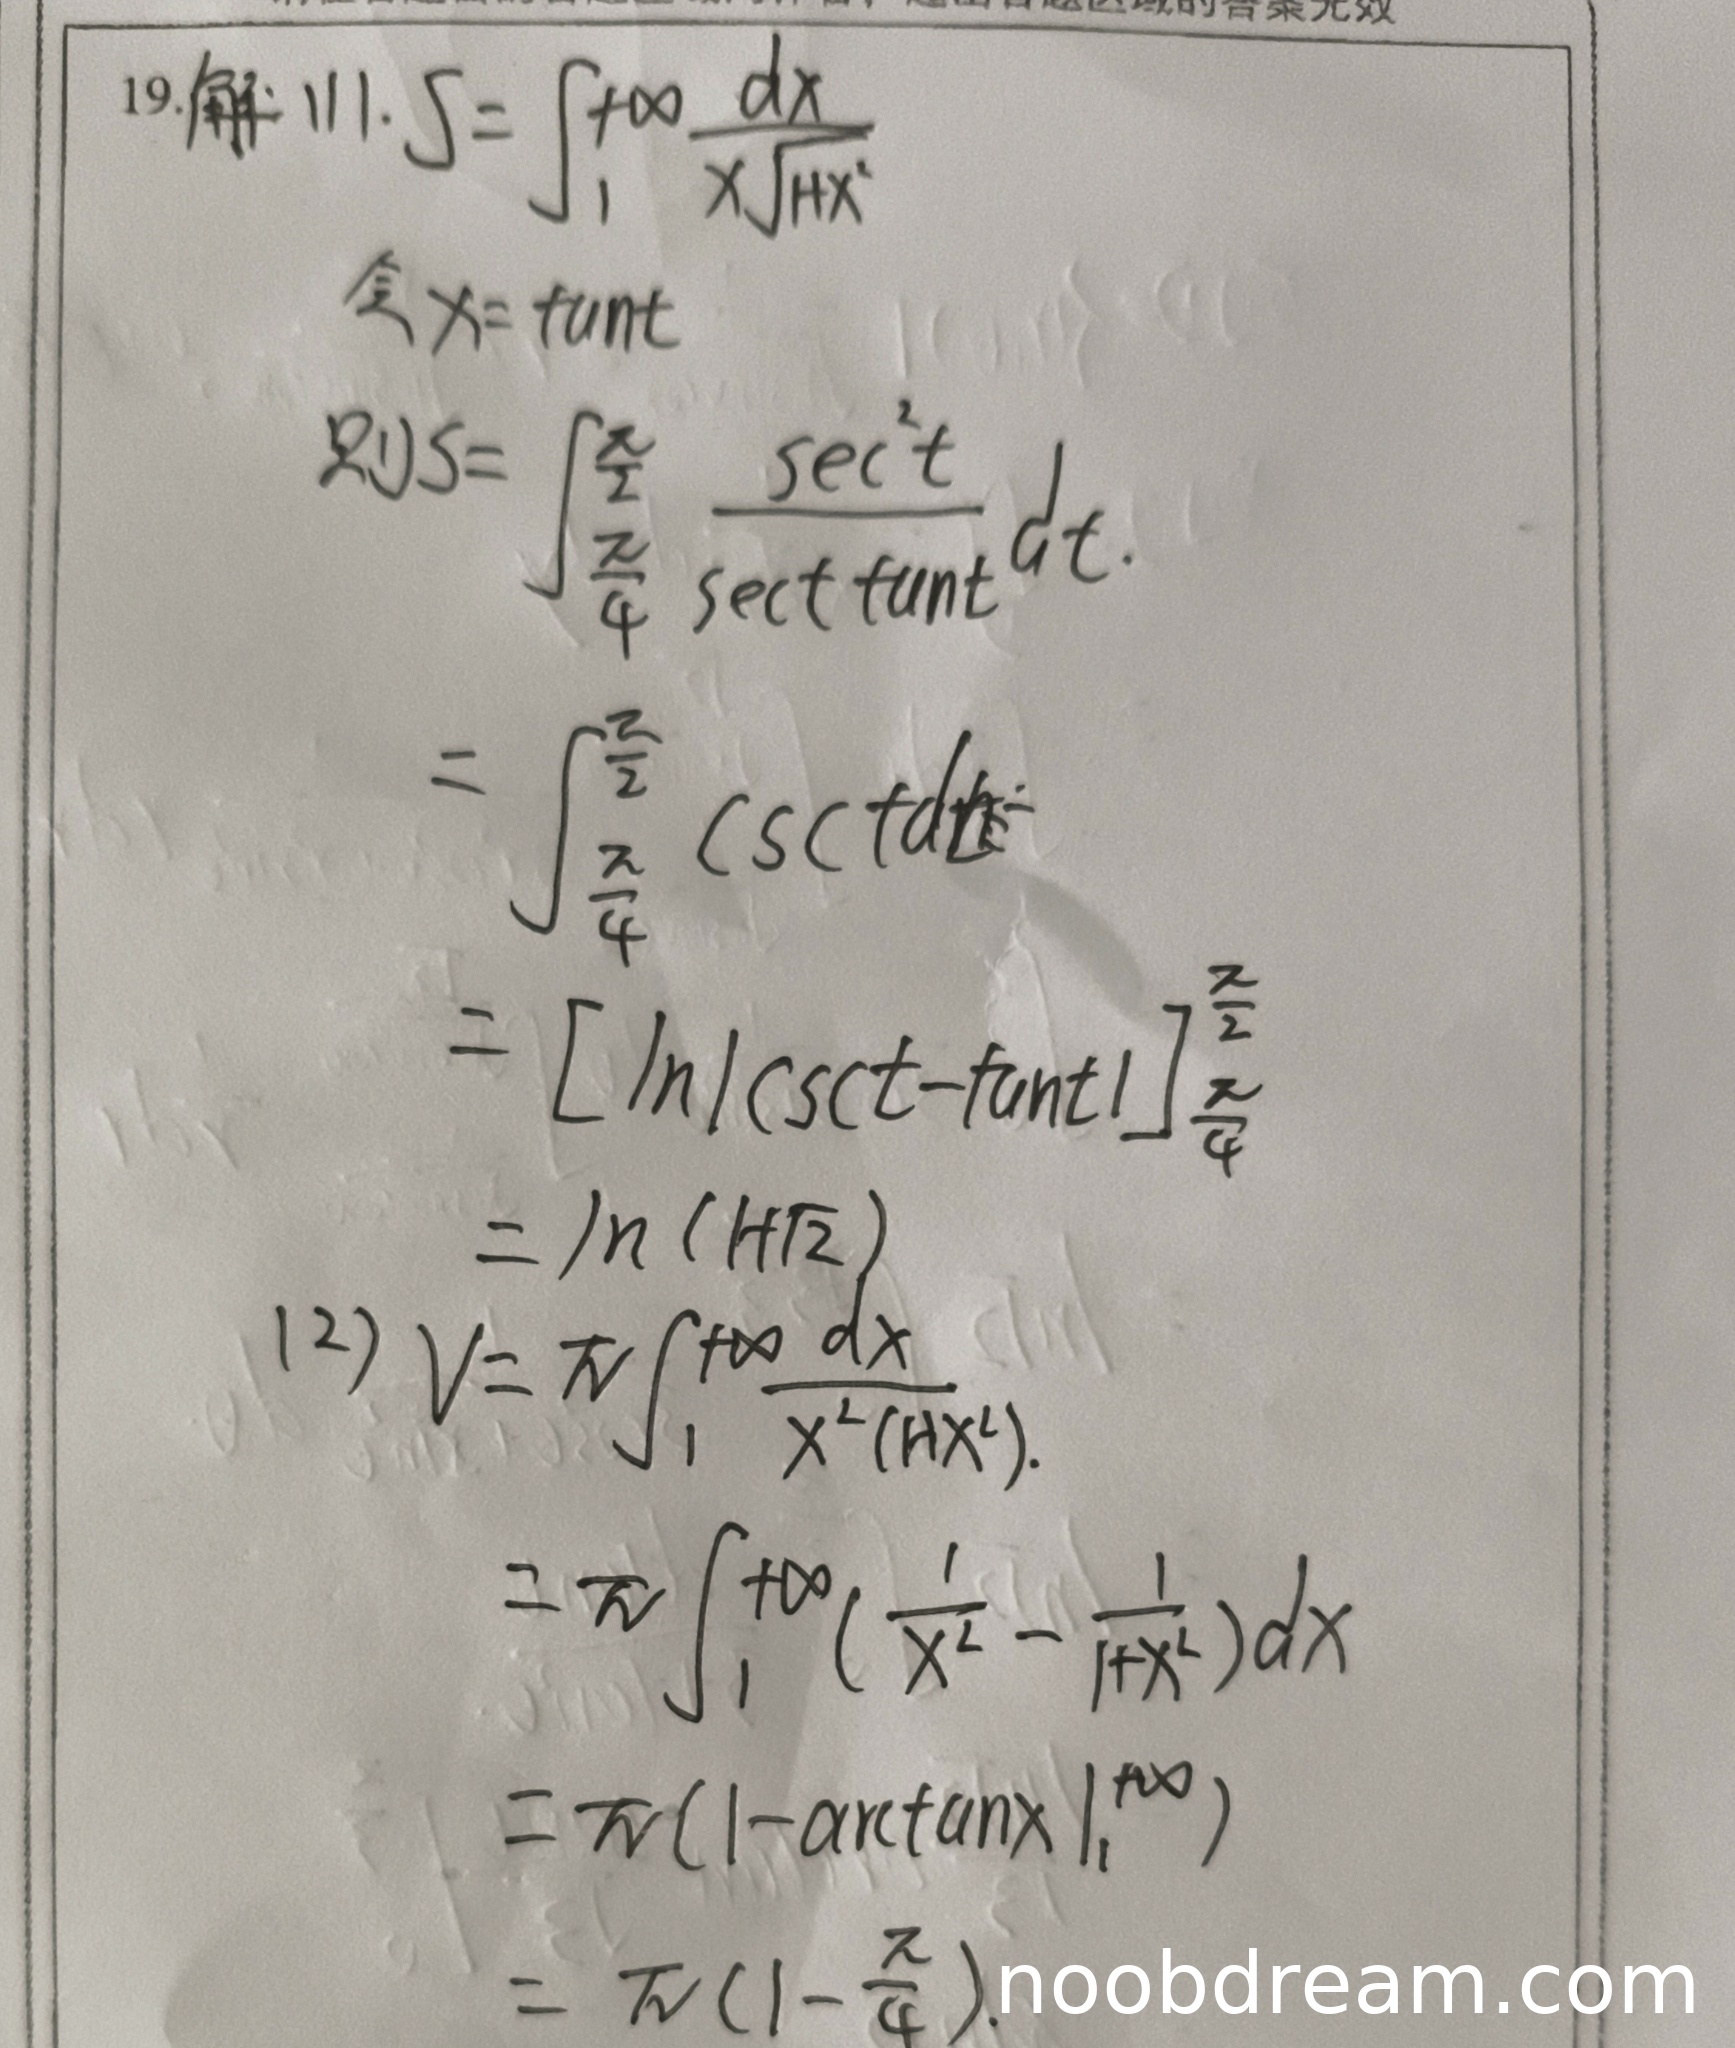 19.解 (1). S = ∫₁^{+∞} dx / (x√(1+x²))
令 x = tant
则 S = ∫_{π/4}^{π/2} sec²t / (sect tant) dt.
= ∫_{π/4}^{π/2} csctdt
= [ln|csct-tant|]_{π/4}^{π/2}
= ln(1+√2)
(2) V = π∫₁^{+∞} dx / (x²(1+x²)).
= π∫₁^{+∞} (1/x² - 1/(1+x²))dx
= π(1-arctanx|₁^{+∞})
= π(1-π/4).
noobdream.com